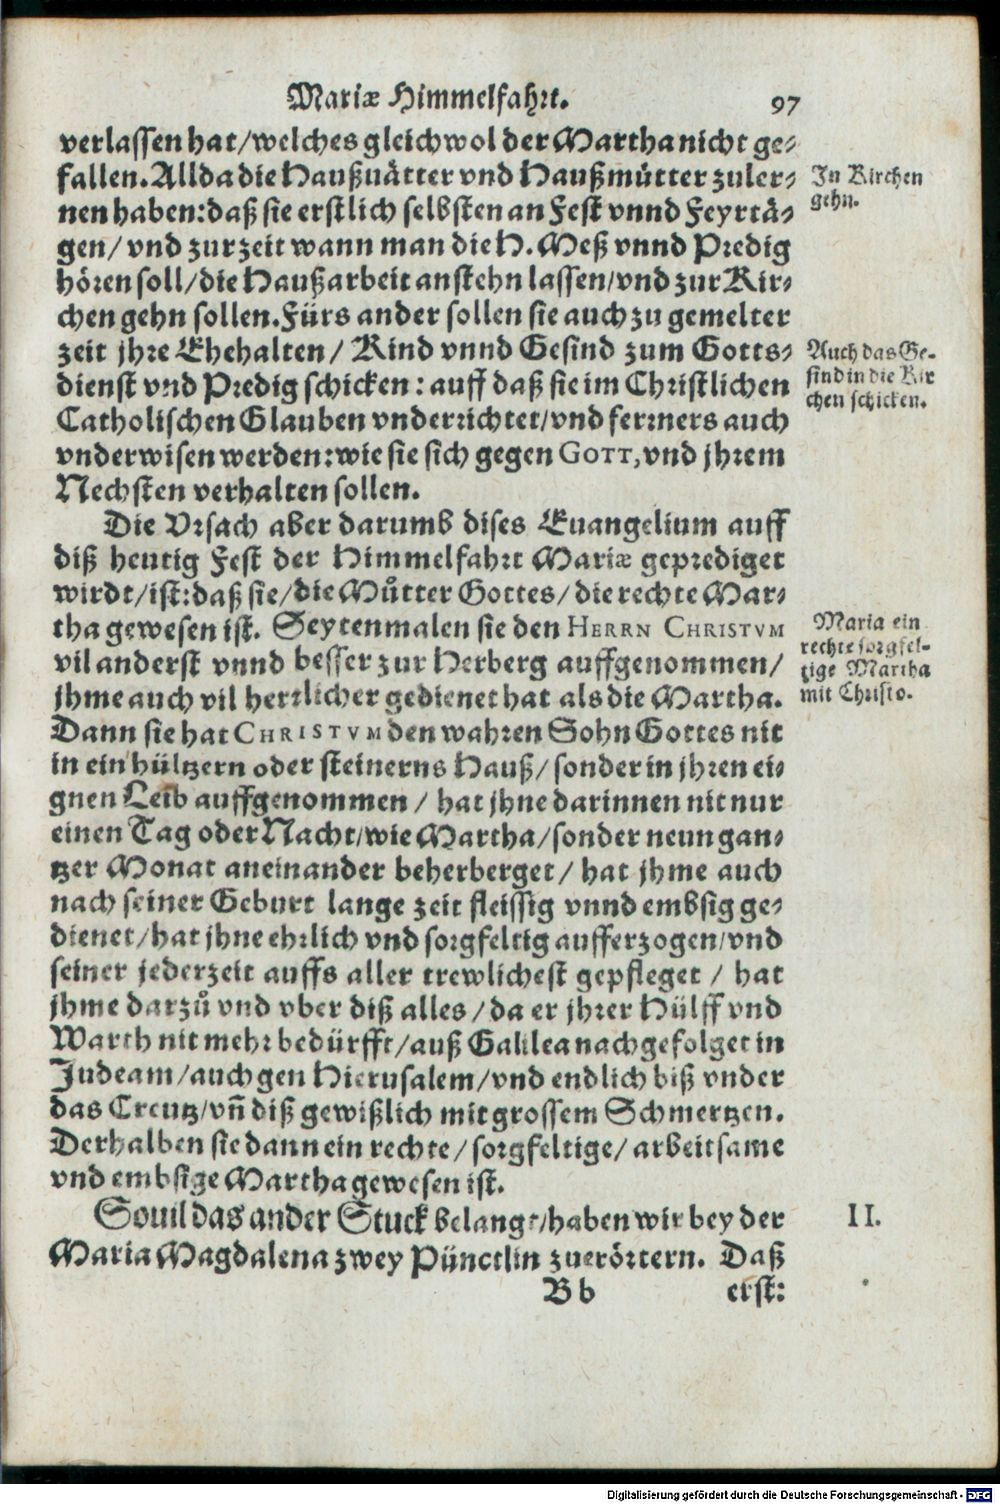 Mariæ Himmelfahrt. 97
verlassen hat/welches gleichwol der Martha nicht ge-
fallen. Allda die Haußuätter vnd Haußmütter zuler-
nen haben: daß sie erstlich selbsten an Fest vnnd Feyrtä-
gen/ vnd zur zeit wann man die H. Meß vnnd Predig
hören soll/die Haußarbeit anstehn lassen/vnd zur Kir-
chen gehn sollen. Fürs ander sollen sie auch zu gemelter
zeit jhre Ehehalten/ Kind vnnd Gesind zum Gotts-
dienst vnd Predig schicken: auff daß sie im Christlichen
Catholischen Glauben vnderrichtet/vnd ferrners auch
vnderwisen werden: wie sie sich gegen GOTT, vnd jhrem
Nechsten verhalten sollen.
In Kirchen
gehn.
Auch das Ge-
sind in die Kir
chen schicken.
Die Vrsach aber darumb dises Euangelium auff
diß heutig Fest der Himmelfahrt Mariæ geprediget
wirdt/ist: daß sie/die Můtter Gottes/ die rechte Mar-
tha gewesen ist. Seytenmalen sie den HERRN CHRISTVM
vil anderst vnnd besser zur Herberg auffgenommen/
jhme auch vil herrlicher gedienet hat als die Martha.
Dann sie hat CHRISTVM den wahren Sohn Gottes nit
in ein hültzern oder steinerns Hauß/ sonder in jhren ei-
gnen Leib auffgenommen / hat jhne darinnen nit nur
einen Tag oder Nacht/wie Martha/sonder neun gan-
tzer Monat aneinander beherberget/ hat jhme auch
nach seiner Geburt lange zeit fleissig vnnd embsig ge-
dienet/hat jhne ehrlich vnd sorgfeltig aufferzogen/vnd
seiner jederzeit auffs aller trewlichest gepfleget / hat
jhme darzů vnd vber diß alles/da er jhrer Hülff vnd
Warth nit mehr bedürfft/auß Galilea nachgefolget in
Judeam/auch gen Hierusalem/vnd endlich biß vnder
das Creutz/vñ diß gewißlich mit grossem Schmertzen.
Derhalben sie dann ein rechte/ sorgfeltige/ arbeitsame
vnd embsige Martha gewesen ist.
Maria ein
rechte sorgfel-
tige Martha
mit Christo.
Souil das ander Stuck belangt/haben wir bey der
Maria Magdalena zwey Pünctlin zuerörtern. Daß
II.
B b erst:
Digitalisierung gefördert durch die Deutsche Forschungsgemeinschaft - DFG